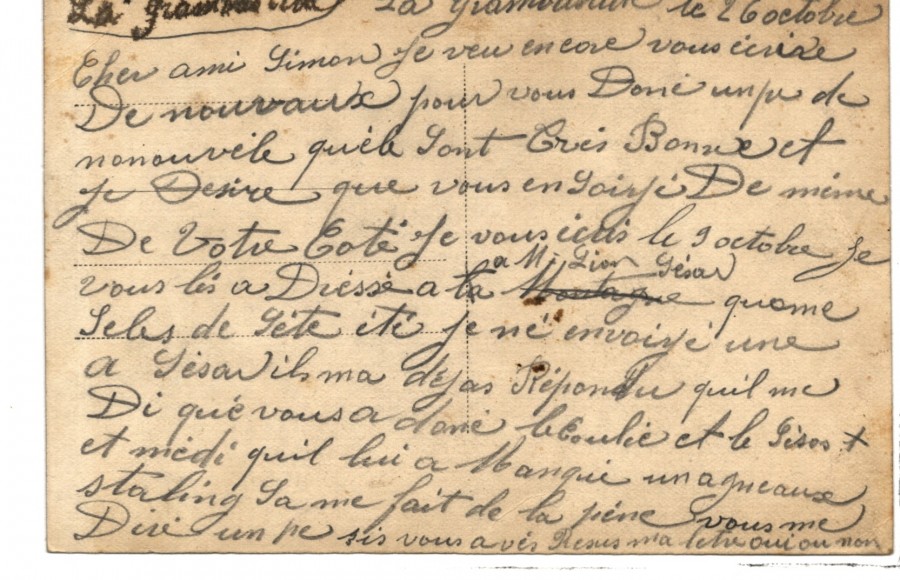 La Grambusième La Grambusieme le 26 octobre
Cher ami Simon Je veu encore vous écrire
De nouvaux pour vous Doné un pe de
nonouvéle quéle Sont Très Bonne et
Je Desire que vous en Soiyé De même
De Votre Coté Je vous écris le 9 octobre Je
a M. Lion Sésar
vous lés a Dréssé a la Montagne quome
Seles de Séte été je né envoiyé une
a Sésar ils ma déjas Répondu quil me
Di qué vous a doné le Coulié et le +
et médi quil lui a Manqué un agneaux
staling Sa me fait de la péne vous me
Diré un pe sis vous avés Resus ma letre oui ou non